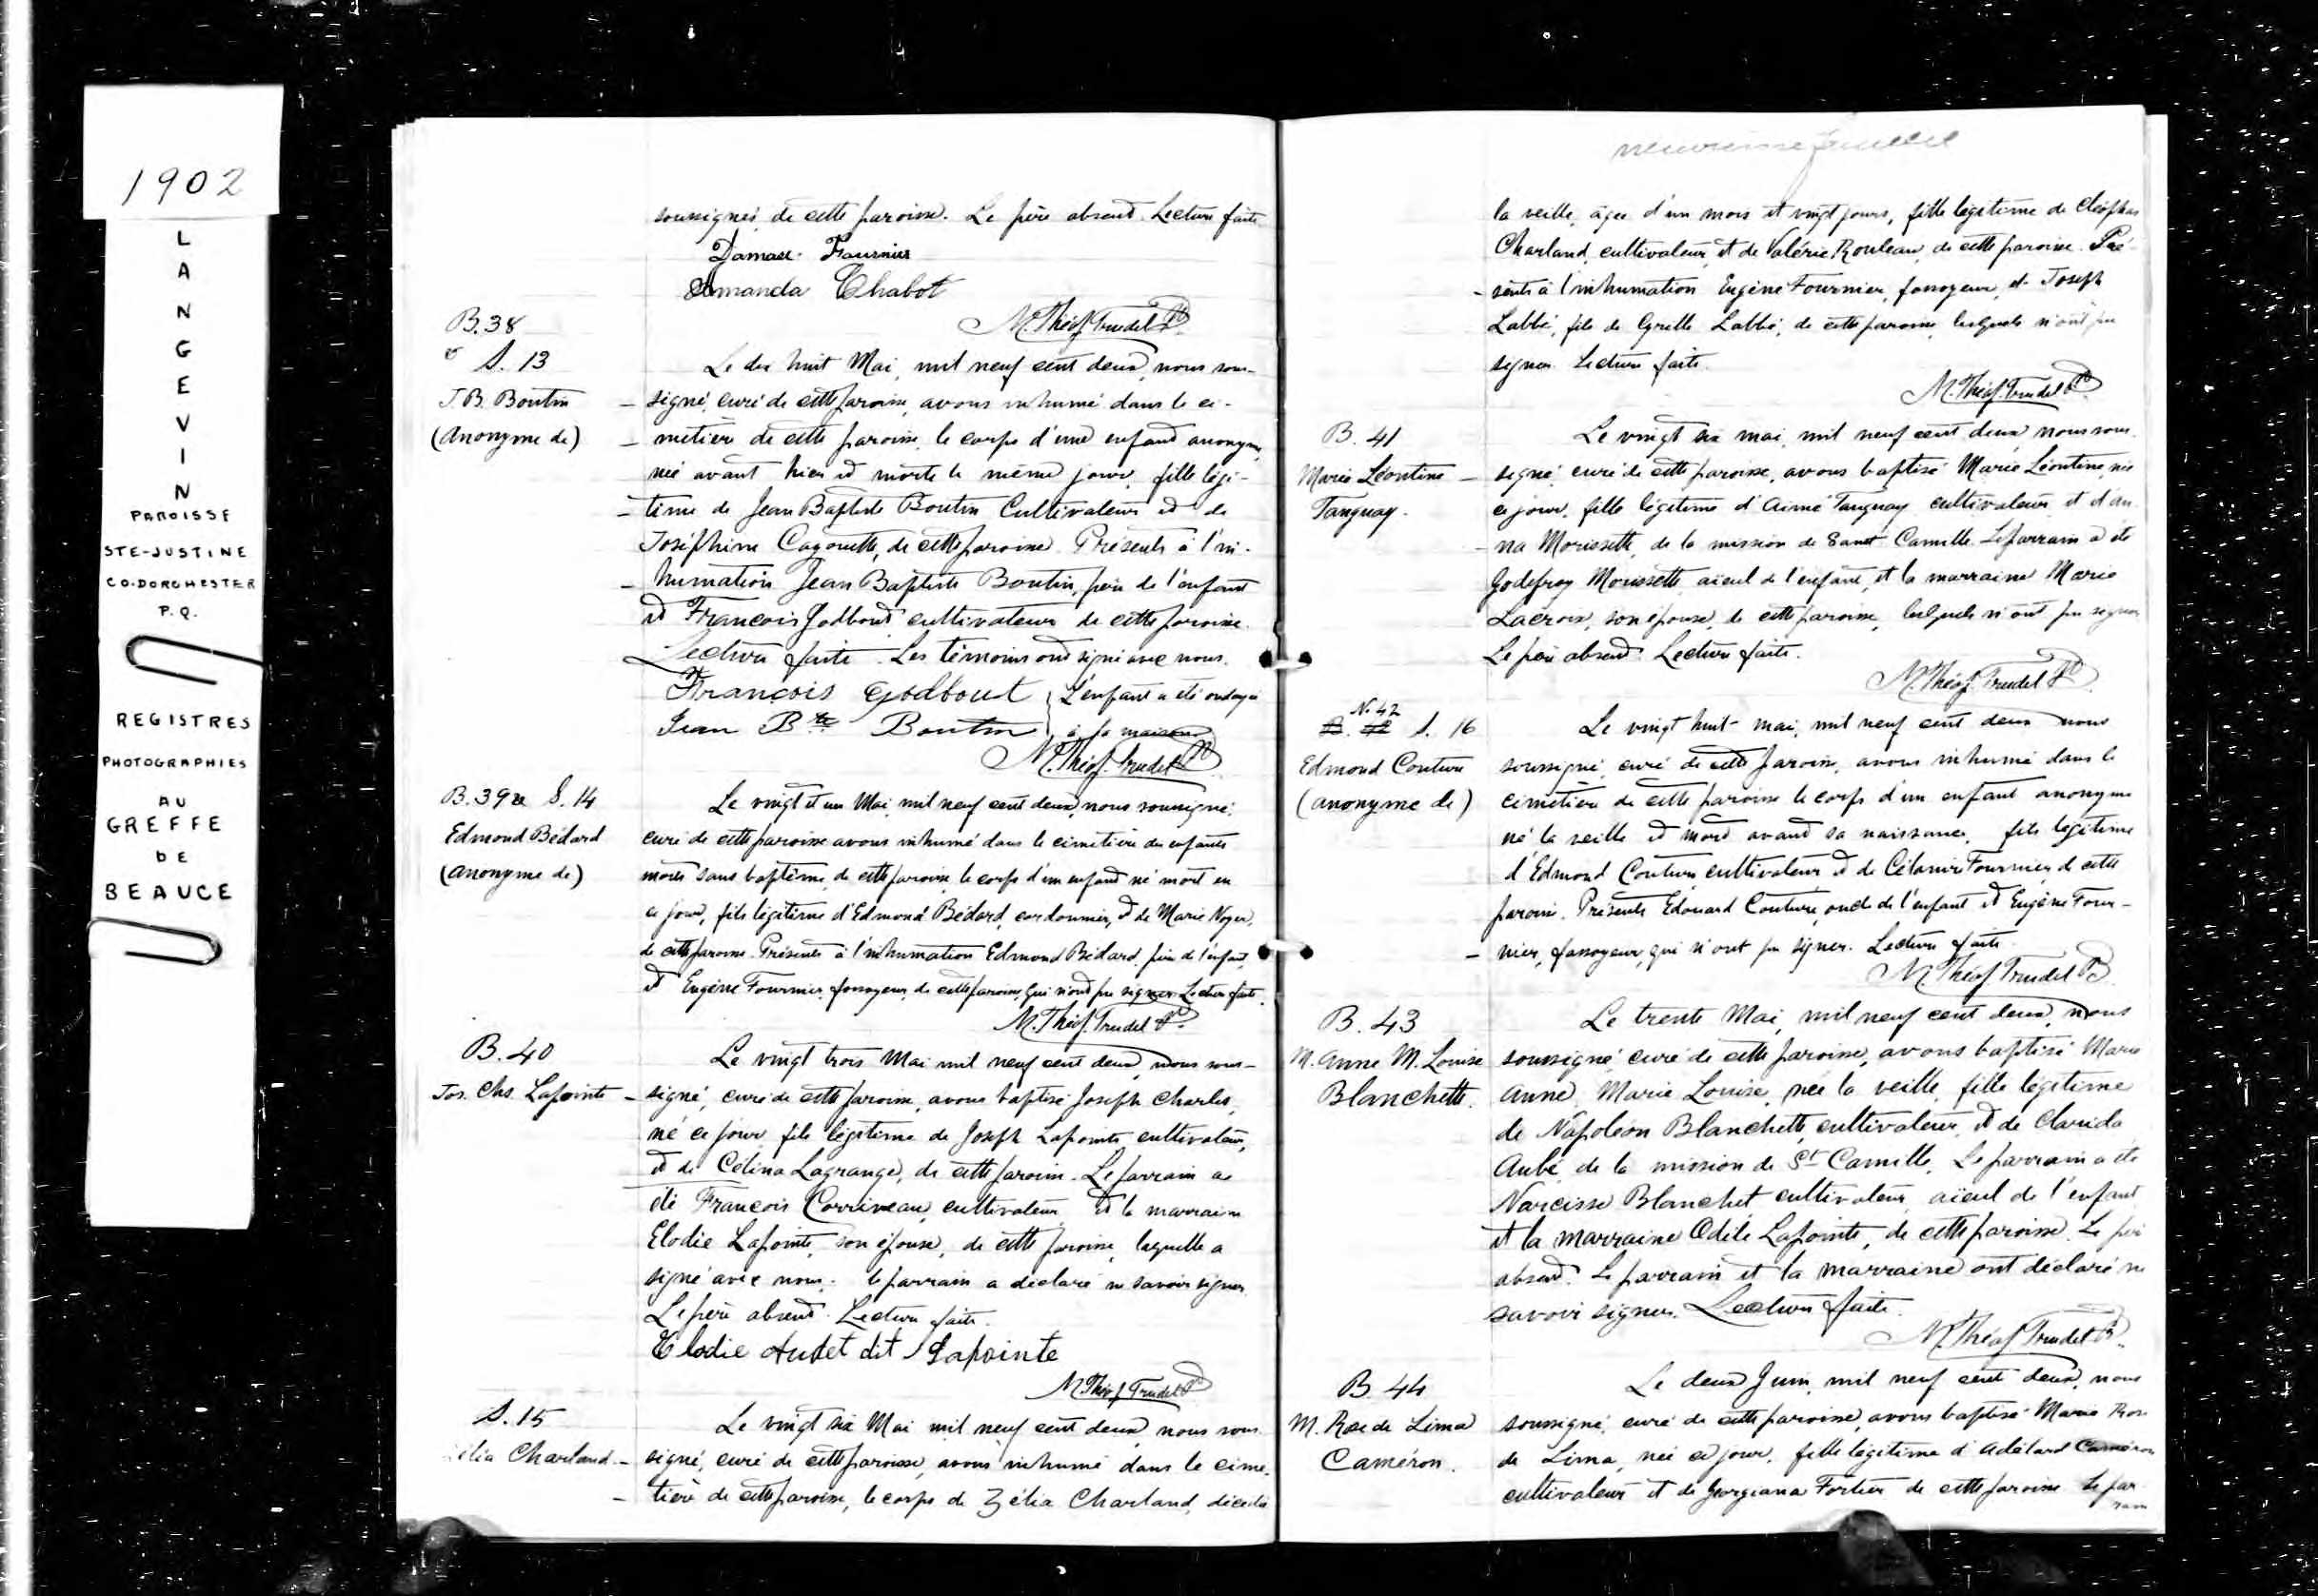 1902
L
A
N
G
E
V
I
N
PAROISSE
STE-JUSTINE
CO. DORCHESTER
P.Q.
REGISTRES
PHOTOGRAPHIES
AU
GREFFE
DE
BEAUCE
soussignés, de cette paroisse. Le père absent. Lecture faite.
Damase Fournier
Amanda Chabot
M. Théop. Trudel Ptre
B. 38
& S. 13
J. B. Boutin
(Anonyme de)
Le dix huit Mai, mil neuf cent deux, nous sous-
signé, curé de cette paroisse, avons inhumé dans le ci-
metière de cette paroisse, le corps d'une enfant anonyme,
née avant hier et morte le même jour, fille légi-
time de Jean Baptiste Boutin Cultivateur et de
Joséphine Cayouette, de cette paroisse. Présents à l'in-
humation Jean Baptiste Boutin, père de l'enfant
et François Godbout cultivateur de cette paroisse.
Lecture faite. Les témoins ont signé avec nous.
François Godbout } L'enfant a été ondoyée
Jean Bte Boutin } à la maison
M. Théop. Trudel Ptre
B. 39 & S. 14
Edmond Bédard
(Anonyme de)
Le vingt et un Mai, mil neuf cent deux, nous soussigné,
curé de cette paroisse avons inhumé dans le cimetière des enfants
morts sans baptême, de cette paroisse, le corps d'un enfant né mort en
ce jour, fils légitime d'Edmond Bédard, cordonnier, et de Marie Noyer,
de cette paroisse. Présents à l'inhumation Edmond Bédard, père de l'enfant,
et Eugène Fournier, fossoyeur, de cette paroisse, qui n'ont pu signer. Lecture faite.
M. Théop. Trudel Ptre
B. 40
Jos. Chs. Lapointe
Le vingt trois Mai mil neuf cent deux, nous sous-
signé, curé de cette paroisse, avons baptisé Joseph Charles,
né ce jour, fils légitime de Joseph Lapointe, cultivateur,
et de Célina Lagrange, de cette paroisse. Le parrain a
été François Corriveau, cultivateur, et la marraine
Elodie Lapointe, son épouse, de cette paroisse, laquelle a
signé avec nous. le parrain a déclaré ne savoir signer.
Le père absent. Lecture faite.
Elodie Audet dit Lapointe
M. Théop. Trudel Ptre
S. 15
élia Charland
Le vingt six Mai mil neuf cent deux, nous sous-
signé, curé de cette paroisse, avons inhumé dans le cime-
tière de cette paroisse, le corps de Zélia Charland, décédée
la veille, âgée d'un mois et vingt jours, fille légitime de Cléophas
Charland, cultivateur, et de Valérie Rouleau, de cette paroisse. Pré-
sents à l'inhumation Eugène Fournier, fossoyeur, et Joseph
Labbé, fils de Cyrille Labbé, de cette paroisse, lesquels n'ont pu
signer. Lecture faite.
M. Théop. Trudel Ptre
B. 41
Marie Léontine
Tanguay.
Le vingt six mai, mil neuf cent deux nous sous-
signé, curé de cette paroisse, avons baptisé Marie Léontine, née
ce jour, fille légitime d'Aimé Tanguay cultivateur et d'An-
na Morissette, de la mission de Saint Camille. Le parrain a été
Godefroy Morissette, aïeul de l'enfant, et la marraine Marie
Lacroix, son épouse, de cette paroisse, lesquels n'ont pu signer.
Le père absent. Lecture faite.
M. Théop. Trudel Ptre
N. 42
S. 16
Edmond Couture
(anonyme de)
Le vingt huit mai, mil neuf cent deux nous
soussigné, curé de cette paroisse, avons inhumé dans le
cimetière de cette paroisse le corps d'un enfant anonyme
né la veille et mort avant sa naissance, fils légitime
d'Edmond Couture, cultivateur et de Célanire Fournier, de cette
paroisse. Présents Edouard Couture, oncle de l'enfant et Eugène Four-
nier, fossoyeur, qui n'ont pu signer. Lecture faite.
M. Théop. Trudel Ptre
B. 43
M. Anne M. Louise
Blanchette.
Le trente Mai, mil neuf cent deux, nous
soussigné curé de cette paroisse, avons baptisé Marie
Anne, Marie Louise, née la veille, fille légitime
de Napoléon Blanchette, cultivateur, et de Clarida
Aubé, de la mission de St Camille. Le parrain a été
Narcisse Blanchet, cultivateur, aïeul de l'enfant
et la marraine Odile Lapointe, de cette paroisse. Le père
absent. Le parrain et la marraine ont déclaré ne
savoir signer. Lecture faite.
M. Théop. Trudel Ptre
B. 44
M. Rose de Lima
Caméron.
Le deux Juin, mil neuf cent deux, nous
soussigné, curé de cette paroisse, avons baptisé Marie Rose
de Lima, née ce jour, fille légitime d'Adélard Caméron
cultivateur et de Georgiana Fortier de cette paroisse. Le par-
rain